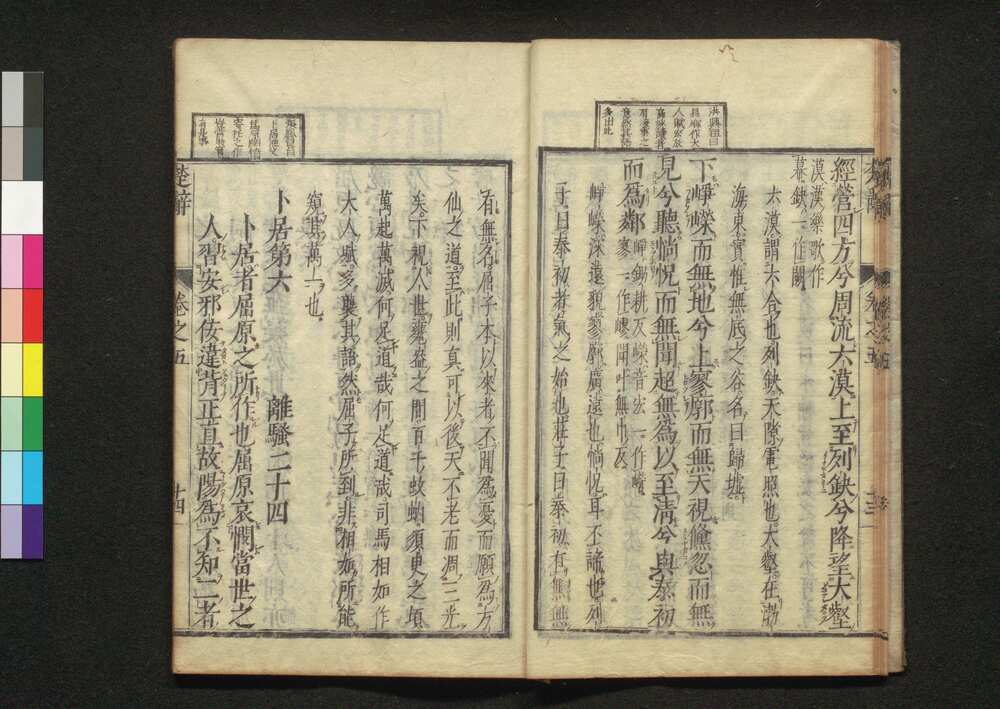 經營四方兮周流六漠上至列缺兮降望大壑
漠漢樂歌作
幕缺一作闕
六漠謂六合也列缺天隙電照也大壑在渤
海東實惟無底之谷名曰歸墟
下崢嶸而無地兮上寥廓而無天視儵忽而無
見兮聽惝怳而無聞超無爲以至清兮與泰初
而爲鄰
崢嶸深遠貌寥廓廣遠也惝怳耳不諦也列
子曰泰初者氣之始也莊子曰泰初有無無
洪興祖曰
有無名屈子本以來者不聞爲憂而願爲方
仙之道至此則真可以後天不老而凋三光
矣下視人世甕盎之間百千蚊蚋須臾之頃
萬起萬滅何足道哉何足道哉司馬相如作
大人賦多襲其語然屈子所到非相如所能
窺其萬一也
卜居第六 離騷二十四
卜居者屈原之所作也屈原哀憫當世之
人習安邪佞違背正直故陽爲不知二者
楚辭 卷之五 十四